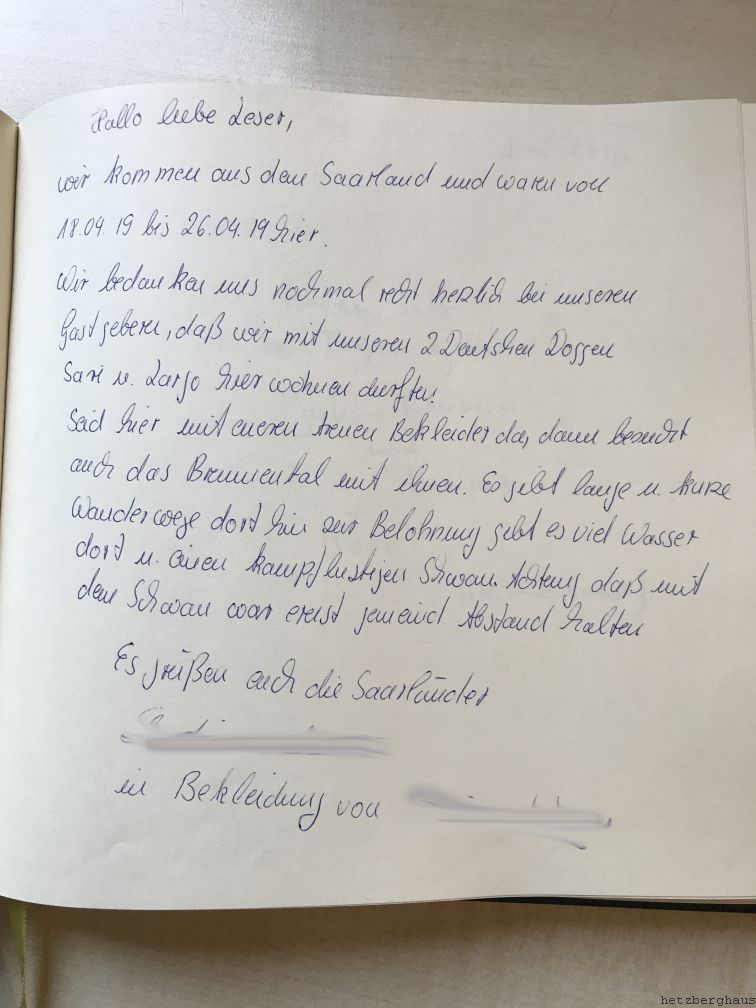 Hallo liebe Leser,
wir kommen aus dem Saarland und waren von
18.04.19 bis 26.04.19 hier.
Wir bedanken uns nochmal recht herzlich bei unseren
Gastgebern, daß wir mit unseren 2 Deutschen Doggen
Sari u. Largo hier wohnen durften.
Seid hier mit eueren treuen Bekleider da, dann besucht
auch das Brennental mit ihnen. Es gibt lange u. kurze
Wanderwege dort hin zur Belohnung gibt es viel Wasser
dort u. einen kampflustigen Schwan. Achtung daß mit
dem Schwan war ernst gemeind Abstand halten
Es grüßen euch die Saarländer
in Bekleidung von
hetzberghaus